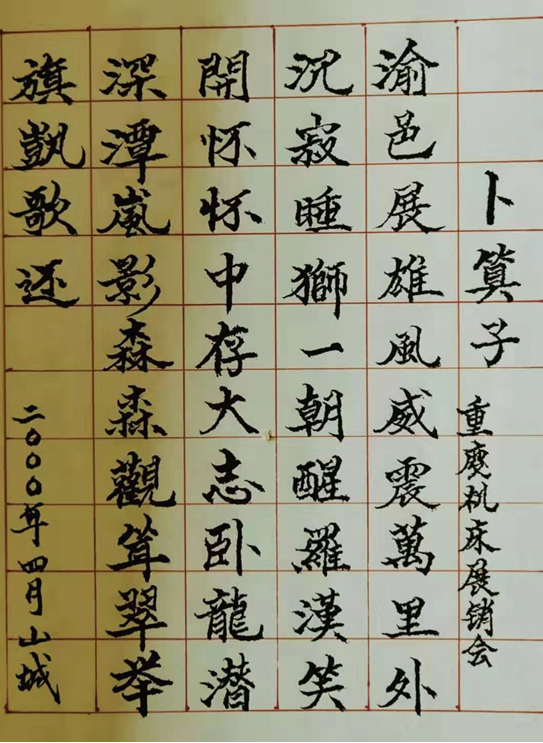 卜算子
重慶机床展销会
渝邑展雄風威震萬里外
沉寂睡獅一朝醒羅漢笑
開怀怀中存大志卧龍潜
深潭嵐影森森觀耸翠举
旗凱歌还
二〇〇〇年四月山城